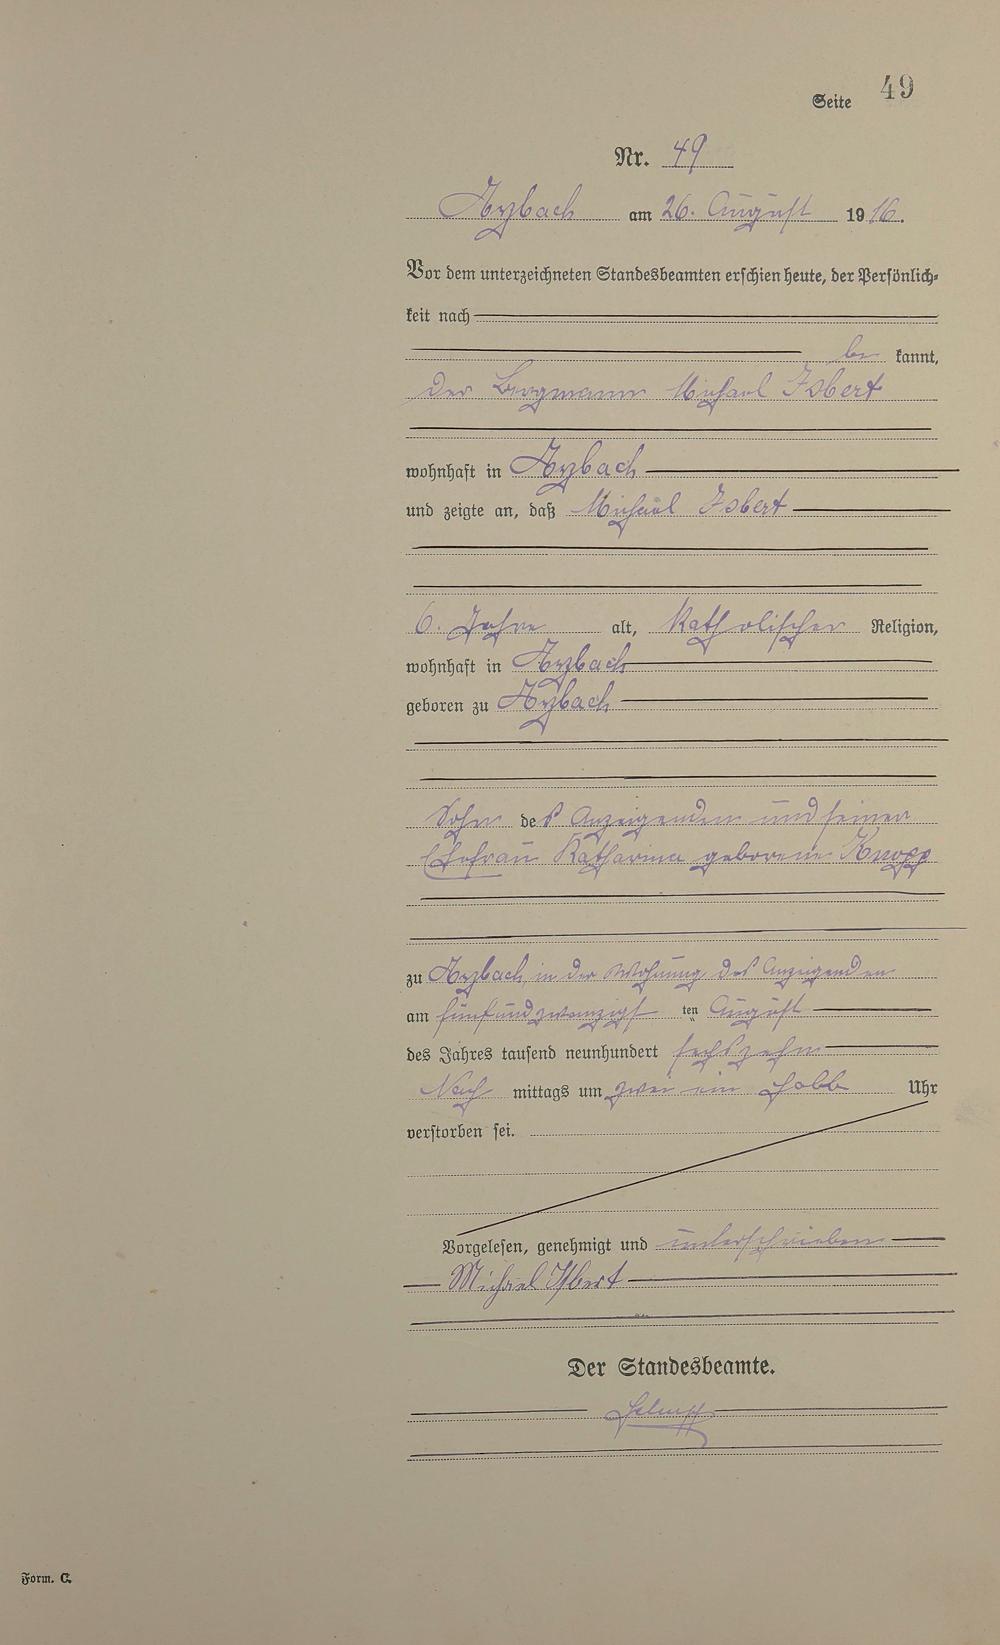 Seite 49
Nr. 49
Arzbach am 26. August 1916.
Vor dem unterzeichneten Standesbeamten erschien heute, der Persönlich-
keit nach
be kannt,
der Bergmann Michael Isbert
wohnhaft in Arzbach
und zeigte an, daß Michael Isbert
6. Jahre alt, katholischer Religion,
wohnhaft in Arzbach
geboren zu Arzbach
Sohn des Anzeigenden und seiner
Ehefrau Katharina geborene Knopp
zu Arzbach, in der Wohnung des Anzeigenden
am fünfundzwanzigsten August
des Jahres tausend neunhundert sechszehn
Nach mittags um zwei ein halb Uhr
verstorben sei.
Vorgelesen, genehmigt und unterschrieben
Michael Isbert
Der Standesbeamte.
Form. C.